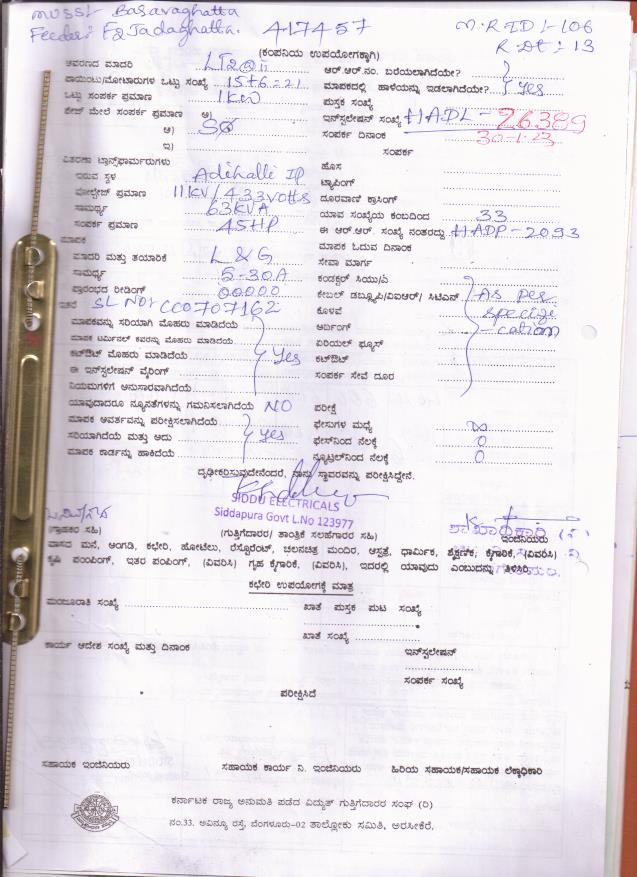 MUSS: Basavaghatta
Feeder: F2 Jadaghatta. 417457 M.R ID:-106
R Dt: 13
(ಕಂಪನಿಯ ಉಪಯೋಗಕ್ಕಾಗಿ)
ಆವರಣದ ಮಾದರಿ LT2@ii ಆರ್.ಆರ್.ನಂ. ಬರೆಯಲಾಗಿದೆಯೇ?
ಪಾಯಿಂಟು/ಮೋಟಾರುಗಳ ಒಟ್ಟು ಸಂಖ್ಯೆ 15+6=21 ಮಾಪಕದಲ್ಲಿ ಹಾಳೆಯನ್ನು ಇಡಲಾಗಿದೆಯೇ? yes
ಒಟ್ಟು ಸಂಪರ್ಕ ಪ್ರಮಾಣ 1KW ಪುಸ್ತಕ ಸಂಖ್ಯೆ
ಪೇಜ್ ಮೇಲೆ ಸಂಪರ್ಕ ಪ್ರಮಾಣ ಅ) ಇನ್‌ಸ್ಟಲೇಷನ್ ಸಂಖ್ಯೆ HADL-26389
ಆ) ಸಂಪರ್ಕ ದಿನಾಂಕ 30-1-23
ಇ) ಸಂಪರ್ಕ
ವಿತರಣಾ ಟ್ರಾನ್ಸ್‌ಫಾರ್ಮರುಗಳು ಹೊಸ
ಇರುವ ಸ್ಥಳ Adihalli IP ಟ್ಯಾಪಿಂಗ್
ವೋಲ್ಟೇಜ್ ಪ್ರಮಾಣ 11KV/433volts ದೂರವಾಣಿ ಕ್ರಾಸಿಂಗ್
ಸಾಮರ್ಥ್ಯ 63KVA ಯಾವ ಸಂಖ್ಯೆಯ ಕಂಬದಿಂದ 33
ಸಂಪರ್ಕ ಪ್ರಮಾಣ 45HP ಈ ಆರ್.ಆರ್. ಸಂಖ್ಯೆ ನಂತರದ್ದು HADP-2093
ಮಾಪಕ ಮಾಪಕ ಓದುವ ದಿನಾಂಕ
ಮಾದರಿ ಮತ್ತು ತಯಾರಿಕೆ L & G ಸೇವಾ ಮಾರ್ಗ
ಸಾಮರ್ಥ್ಯ 5-30A ಕಂಡಕ್ಟರ್ ಸಿಯು/ಎ
ಪ್ರಾರಂಭದ ರೀಡಿಂಗ್ 00000 ಕೇಬಲ್ ಡಬ್ಲ್ಯೂಪಿ/ವಿಐಆರ್/ ಸಿಟಿಎನ್ As per
ಇತರೆ SL NO: CC0707162 ಕೊಳವೆ specifi
ಮಾಪಕವನ್ನು ಸರಿಯಾಗಿ ಮೊಹರು ಮಾಡಿದೆಯೆ ಅರ್ದಿಂಗ್ -cation
ಮಾಪಕ ಟರ್ಮಿನಲ್ ಕವರನ್ನು ಮೊಹರು ಮಾಡಿದೆಯೆ ಏರಿಯಲ್ ಫ್ಯೂಸ್
ಕಟ್‌ಔಟ್ ಮೊಹರು ಮಾಡಿದೆಯೆ yes ಕಟ್‌ಔಟ್
ಈ ಇನ್‌ಸ್ಟಲೇಷನ್ ವೈರಿಂಗ್ ಸಂಪರ್ಕ ಸೇವೆ ದೂರ
ನಿಯಮಗಳಿಗೆ ಅನುಸಾರವಾಗಿದೆಯೆ
ಯಾವುದಾದರೂ ನ್ಯೂನತೆಗಳನ್ನು ಗಮನಿಸಲಾಗಿದೆಯೆ NO ಪರೀಕ್ಷೆ
ಮಾಪಕ ಆವರ್ತವನ್ನು ಪರೀಕ್ಷಿಸಲಾಗಿದೆಯೆ ಫೇಸುಗಳ ಮಧ್ಯೆ ∞
ಸರಿಯಾಗಿದೆಯೆ ಮತ್ತು ಅದು yes ಫೇಸ್‌ನಿಂದ ನೆಲಕ್ಕೆ 0
ಮಾಪಕ ಕಾರ್ಡನ್ನು ಹಾಕಿದೆಯೆ ನ್ಯೂಟ್ರಲ್‌ನಿಂದ ನೆಲಕ್ಕೆ 0
ದೃಢೀಕರಿಸುವುದೇನೆಂದರೆ, ನಾನು ಸ್ಥಾವರವನ್ನು ಪರೀಕ್ಷಿಸಿದ್ದೇನೆ.
SIDDU ELECTRICALS
Siddapura Govt L.No 123977
(ಗ್ರಾಹಕರ ಸಹಿ) (ಗುತ್ತಿಗೆದಾರರ/ ತಾಂತ್ರಿಕ ಸಲಹೆಗಾರರ ಸಹಿ) ಇಂಜಿನಿಯರು
ವಾಸದ ಮನೆ, ಅಂಗಡಿ, ಕಛೇರಿ, ಹೋಟೆಲು, ರೆಸ್ಟೊರೆಂಟ್, ಚಲನಚಿತ್ರ ಮಂದಿರ, ಆಸ್ಪತ್ರೆ, ಧಾರ್ಮಿಕ, ಶೈಕ್ಷಣಿಕ, ಕೈಗಾರಿಕೆ, (ವಿವರಿಸಿ)
ಕೃಷಿ ಪಂಪಿಂಗ್, ಇತರ ಪಂಪಿಂಗ್, (ವಿವರಿಸಿ) ಗೃಹ ಕೈಗಾರಿಕೆ, (ವಿವರಿಸಿ), ಇದರಲ್ಲಿ ಯಾವುದು ಎಂಬುದನ್ನು ತಿಳಿಸಿರಿ.
ಕಛೇರಿ ಉಪಯೋಗಕ್ಕೆ ಮಾತ್ರ
ಮಂಜೂರಾತಿ ಸಂಖ್ಯೆ ಖಾತೆ ಪುಸ್ತಕ ಪುಟ ಸಂಖ್ಯೆ
ಖಾತೆ ಸಂಖ್ಯೆ
ಕಾರ್ಯ ಆದೇಶ ಸಂಖ್ಯೆ ಮತ್ತು ದಿನಾಂಕ ಇನ್‌ಸ್ಟಲೇಷನ್
ಸಂಪರ್ಕ ಸಂಖ್ಯೆ
ಪರೀಕ್ಷಿಸಿದೆ
ಸಹಾಯಕ ಇಂಜಿನಿಯರು ಸಹಾಯಕ ಕಾರ್ಯ ನಿ. ಇಂಜಿನಿಯರು ಹಿರಿಯ ಸಹಾಯಕ/ಸಹಾಯಕ ಲೆಕ್ಕಾಧಿಕಾರಿ
ಕರ್ನಾಟಕ ರಾಜ್ಯ ಅನುಮತಿ ಪಡೆದ ವಿದ್ಯುತ್ ಗುತ್ತಿಗೆದಾರರ ಸಂಘ (ರಿ)
ನಂ.33. ಅವಿನ್ಯೂ ರಸ್ತೆ, ಬೆಂಗಳೂರು-02 ತಾಲ್ಲೋಕು ಸಮಿತಿ, ಅರಸೀಕೆರೆ.